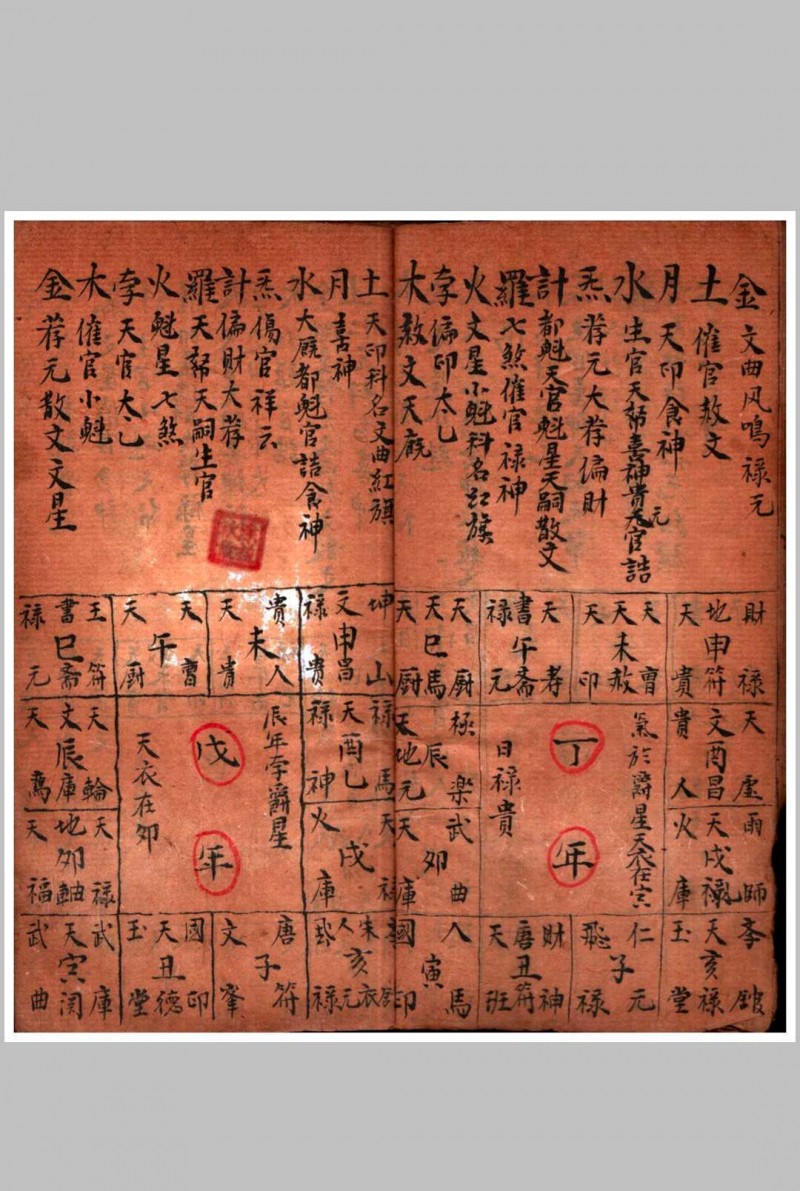 金 文曲风鳴禄元
土 催官赦文
月 天印食神
水 生官天帑喜神貴元官誥
炁 荐元大荐偏财
計 都魁天官魁星天嗣散文
羅 七煞催官禄神
火 文星小魁科名红旗
孛 偏印太乙
木 赦文天廐
土 天印科名文曲紅旗
月 喜神
水 大廐都魁官誥食神
炁 傷官祥云
計 偏财大荐
羅 天帑天嗣生官
火 魁星七煞
孛 天官太乙
木 催官小魁
金 荐元散文文星
財禄
地申符
天貴
天曹
天未赦
天印
天孝
書午斋
禄元
天厨
天巳馬
天厨
天虚
文酉昌
貴人
雨師
天戌禄
火庫
氣於爵星天衣在寅
丁年
日禄貴
極樂
辰
天地元
武曲
卯
天庫
孛
天亥禄
玉堂
仁元
子
飛禄
財神
唐丑符
天班
人馬
寅
國印
坤山
文申昌
禄貴
貴人
未
天貴
天曹
午
天厨
王符
書巳斋
禄元
禄馬
天酉乙
禄神
天
戌
火庫
辰年孛爵星
戊年
天衣在卯
天輪
文辰庫
天
天禄
地卯軸
天福
朱衣
人亥元
禄
唐符
子
文
國印
天丑德
玉堂
武庫
天寅関
武曲